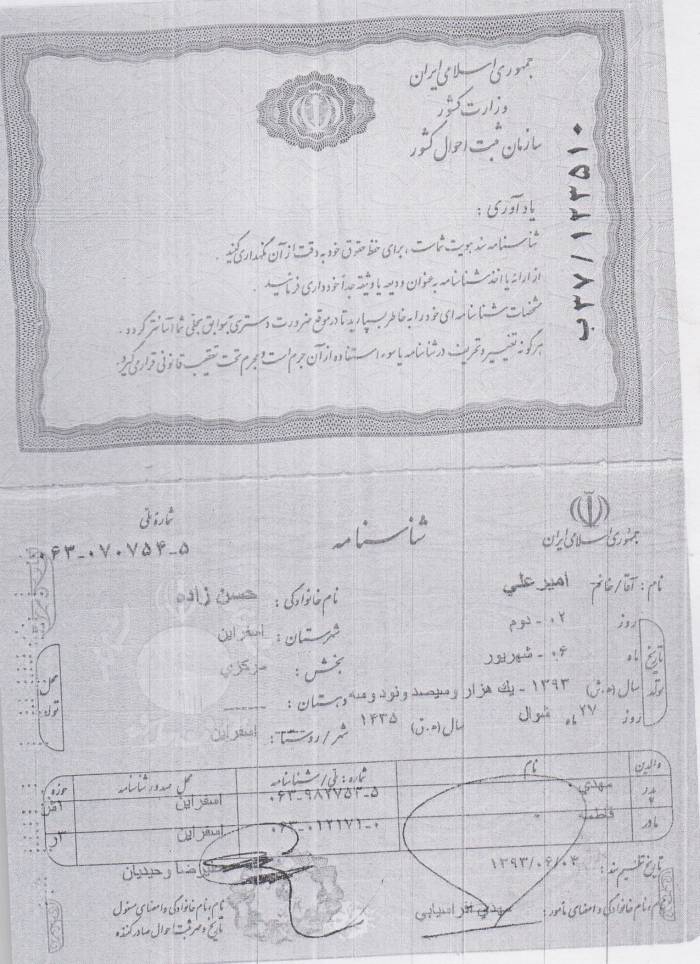 جمهوری اسلامی ایران
وزارت کشور
سازمان ثبت احوال کشور
ب۳۷/۱۲۳۵۱۰
یادآوری :
شناسنامه سند هویت شماست ، برای حفظ حقوق خود به دقت از آن نگهداری کنید .
از ارائه یا اخذ شناسنامه به عنوان ودیعه یا وثیقه جداً خودداری فرمائید .
مشخصات شناسنامه ای خود را به خاطر بسپارید تا در موقع ضرورت دسترسی بسوابق سجلی شما آسانتر گردد .
هرگونه تغییر و تحریف در شناسنامه یا سوء استفاده از آن جرم است و مجرم تحت تعقیب قانونی قرار می گیرد .
جمهوری اسلامی ایران
شناسنامه
شماره ملی
۰۶۳-۰۷۰۷۵۴-۵
نام : آقا/خانم امیرعلی نام خانوادگی : حسن زاده
تاریخ تولد
روز ۰۲ - دوم
ماه ۰۶ - شهریور
سال (ه.ش) ۱۳۹۳ - یك هزار و سیصد و نود و سه
روز ۲۷ ماه شوال سال (ه.ق) ۱۴۳۵
محل تولد
شهرستان : اسفراین
بخش : مرکزی
دهستان : ------
شهر/روستا : اسفراین
والدین نام شماره : ملی/شناسنامه محل صدور شناسنامه حوزه
پدر مهدی ۰۶۳-۹۸۲۷۵۳-۵ اسفراین
مادر فاطمه ۰۶۳-۰۱۲۱۷۱-۰ اسفراین
تاریخ تنظیم سند : ۱۳۹۳/۰۶/۰۴
نام ، نام خانوادگی و امضای مأمور : مهدی افراسیابی
علیرضا وحیدیان
نام ، نام خانوادگی و امضای مسئول
تاریخ و مهر ثبت احوال صادر کننده